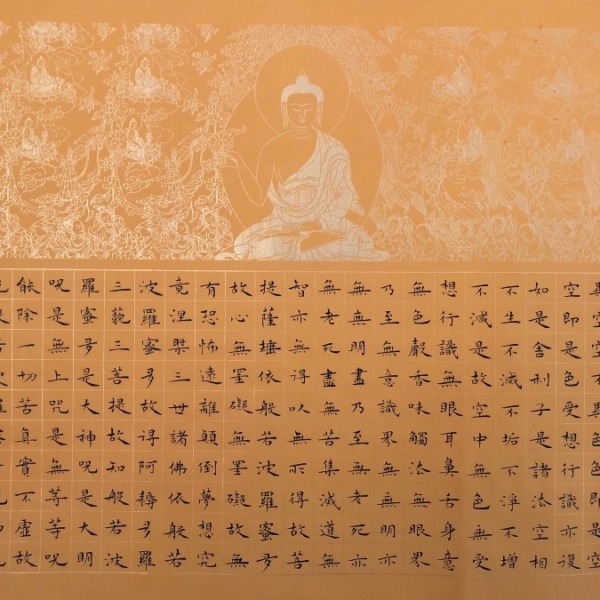 異空空不異色色即是空
空即是色受想行識亦復
如是舍利子是諸法空相
不生不滅不垢不淨不增
不減是故空中無色無受
想行識無眼耳鼻舌身意
無色聲香味觸法無眼界
乃至無意識界無無明亦
無無明盡乃至無老死亦
無老死盡無苦集滅道無
智亦無得以無所得故菩
提薩埵依般若波羅蜜多
故心無罣礙無罣礙故無
有恐怖遠離顛倒夢想究
竟涅槃三世諸佛依般若
波羅蜜多故得阿耨多羅
三藐三菩提故知般若波
羅蜜多是大神咒是大明
咒是無上咒是無等等咒
能除一切苦真實不虛故